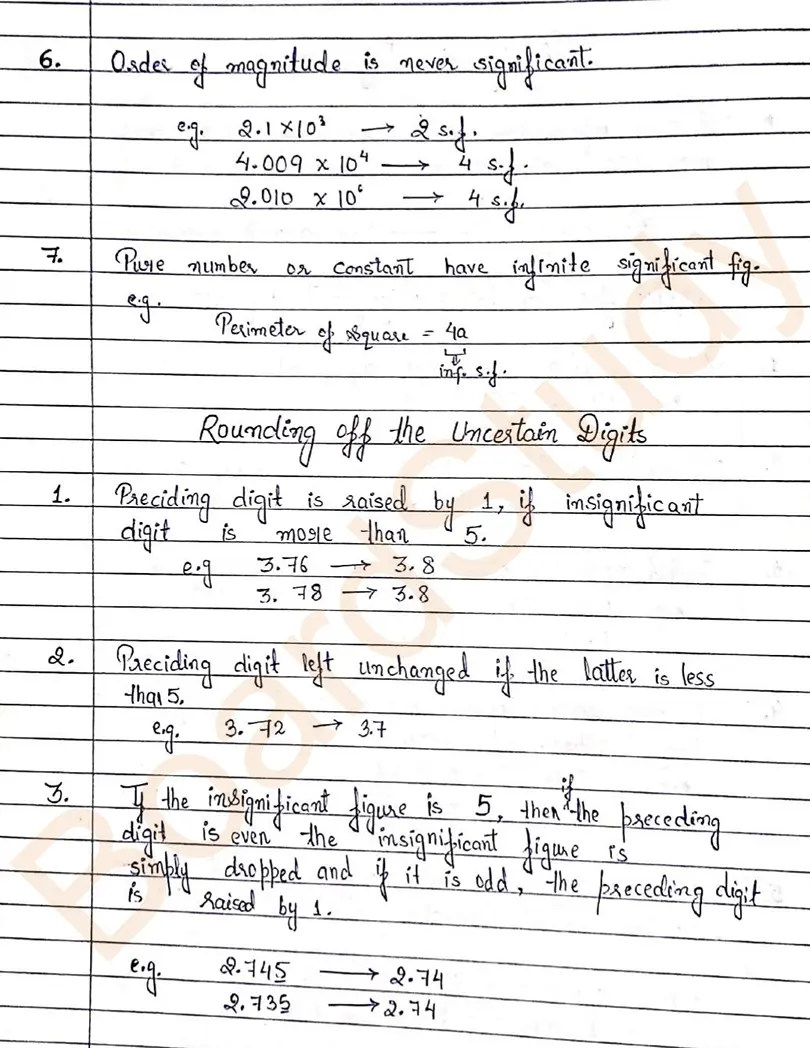 6. Order of magnitude is never significant.
e.g. 2.1 × 10³ → 2 s.f.
4.009 × 10⁴ → 4 s.f.
2.010 × 10⁶ → 4 s.f.
7. Pure number or constant have infinite significant fig.
e.g.
Perimeter of square = 4a
inf. s.f.
Rounding off the Uncertain Digits
1. Preciding digit is raised by 1, if insignificant
digit is more than 5.
e.g 3.76 → 3.8
3.78 → 3.8
2. Preciding digit left unchanged if the latter is less
than 5.
e.g. 3.72 → 3.7
3. If the insignificant figure is 5, then if the preceding
digit is even the insignificant figure is
simply dropped and if it is odd, the preceding digit
is raised by 1.
e.g. 2.745 → 2.74
2.735 → 2.74
BoardStudy